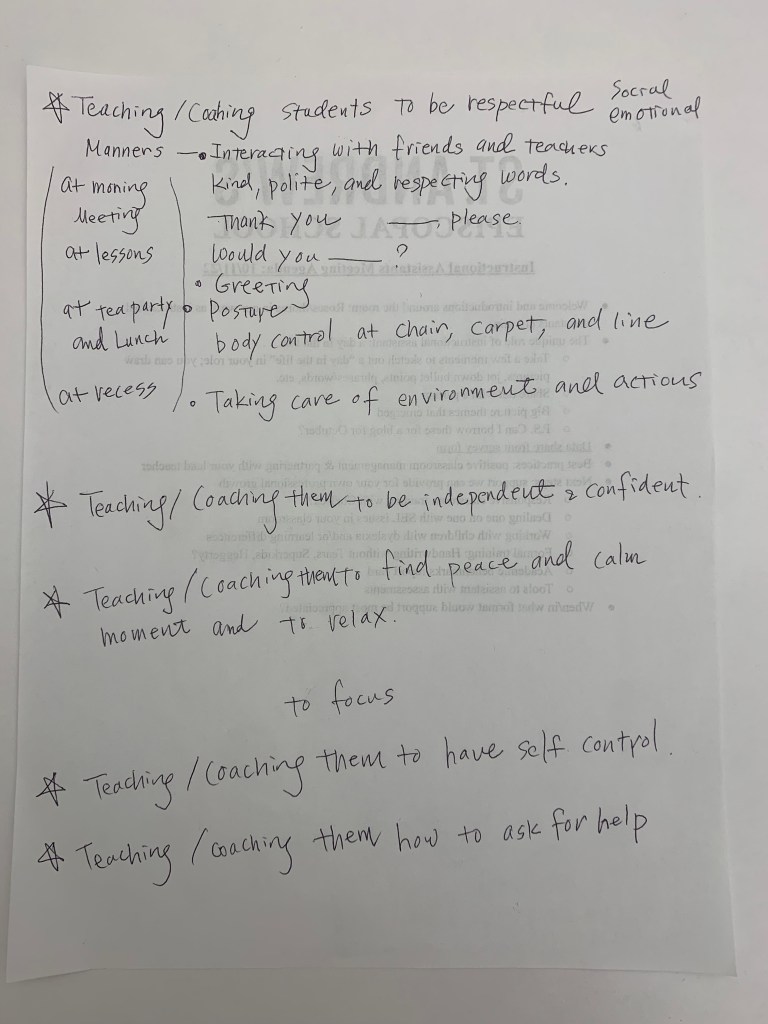 ☆ Teaching / Coahing students to be respectful Social emotional
Manners — • Interacting with friends and teachers
at moning Kind, polite, and respecting words.
Meeting Thank you ___, please.
at lessons Would you ___ ?
• Greeting
at tea party • Posture
and Lunch body control at chair, carpet, and line
at recess • Taking care of environment and actions
☆ Teaching / Coaching them to be independent & confident.
☆ Teaching / Coaching them to find peace and calm
moment and to relax.
to focus
☆ Teaching / Coaching them to have self control.
☆ Teaching / coaching them how to ask for help
ST. ANDREW'S
EPISCOPAL SCHOOL